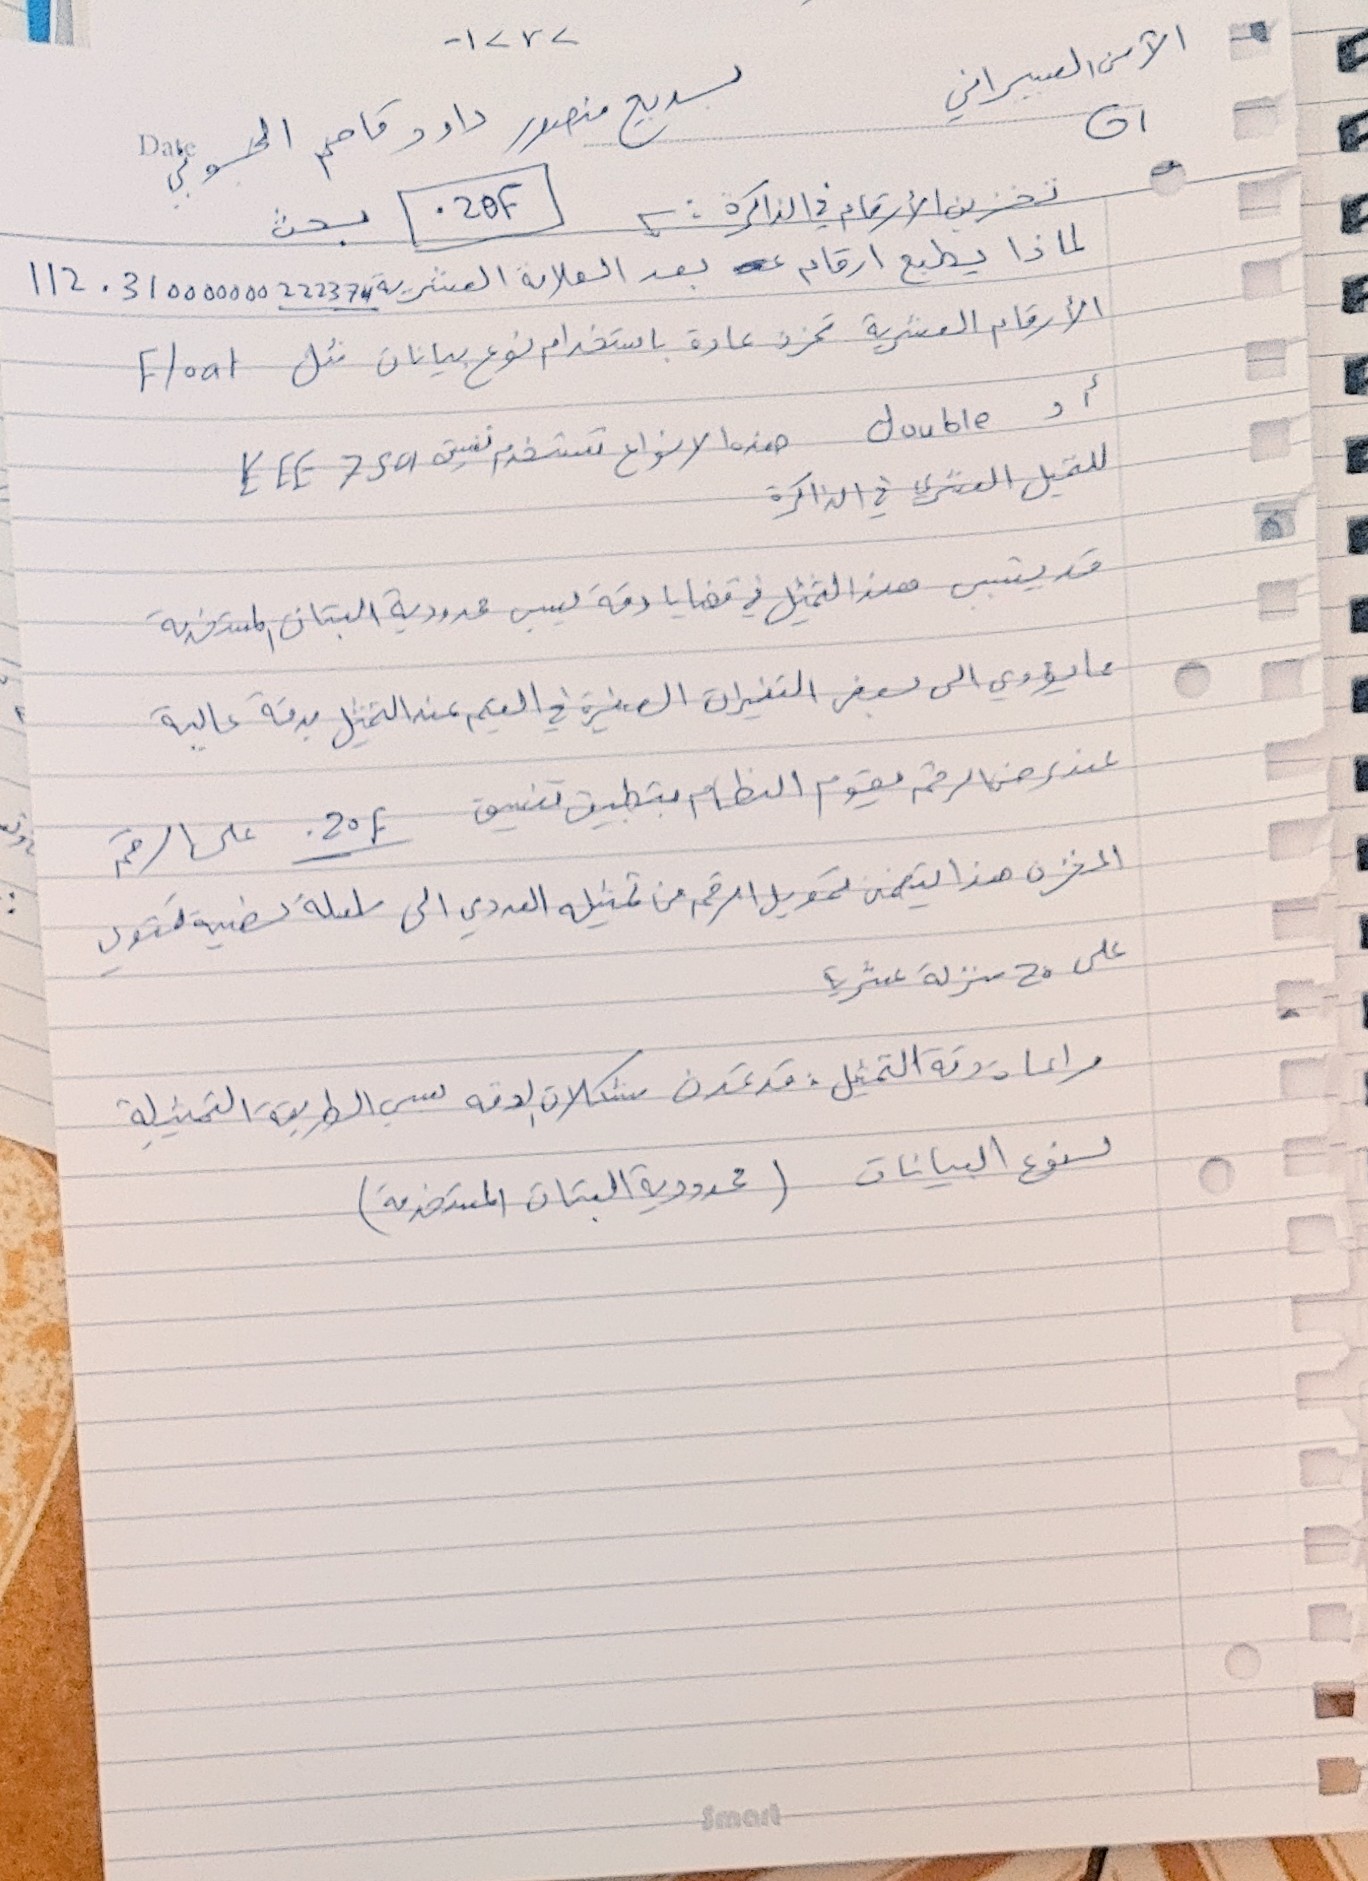 الأمن السيبراني
G1
بديع منصور داود قاسم
Date
تخزين الأرقام في الذاكرة :- .20F بحث
لماذا يطبع ارقام بعد العلامة العشرية 112.310000000222374
الأرقام العشرية تخزن عادة باستخدام نوع بيانات مثل Float
أو double هذه الانواع تستخدم تنسيق IEEE 754
للتمثيل العشري في الذاكرة
قد يتسبب هذا التمثيل في قضايا دقة بسبب محدودية البتات المستخدمة
ما يؤدي الى بعض التغيرات الصغيرة في القيم عند التمثيل بدقة عالية
عند عرض الرقم يقوم النظام بتطبيق تنسيق .20F على الرقم
المخزن هذا يتضمن تحويل الرقم من تمثيله العددي الى سلسلة نصية تحتوي
على 20 منزلة عشرية
مراعاة دقة التمثيل : قد تحدث مشكلات الدقه بسبب الطريقة التمثيلية
لنوع البيانات (محدودية البتات المستخدمة)